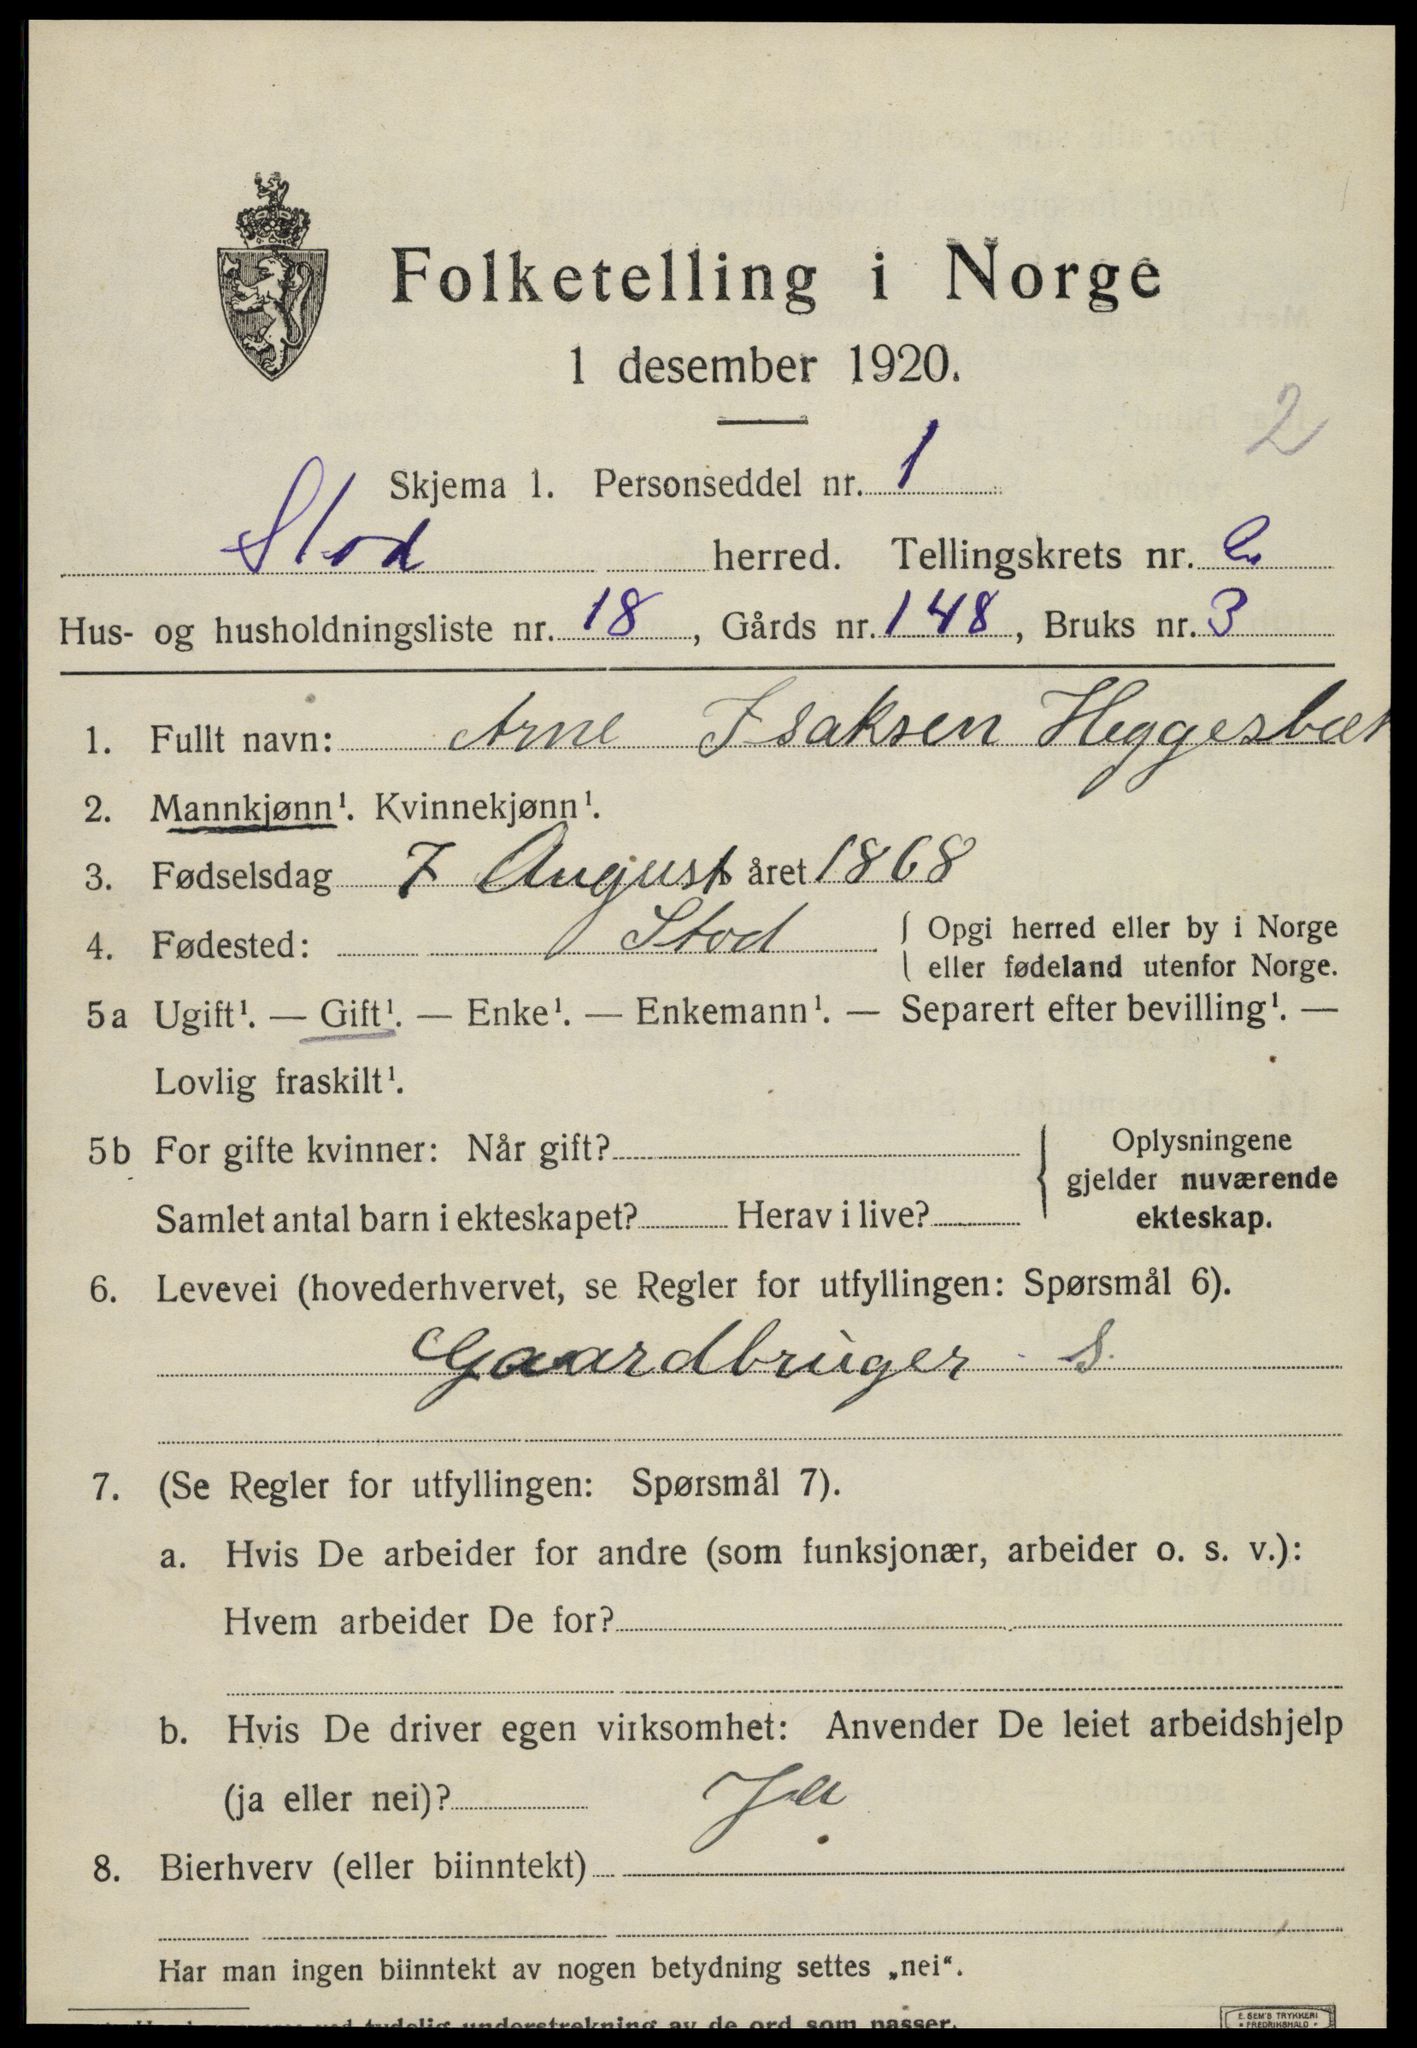 Folketelling i Norge
1 desember 1920.
2
Skjema 1. Personseddel nr. 1
Stod herred. Tellingskrets nr. 2
Hus- og husholdningsliste nr. 18, Gårds nr. 148, Bruks nr. 3
1. Fullt navn: Arne Isaksen Heggesbæk
2. Mannkjønn¹. Kvinnekjønn¹.
3. Fødselsdag 7 August året 1868
4. Fødested: Stod { Opgi herred eller by i Norge
eller fødeland utenfor Norge.
5a Ugift¹. — Gift¹. — Enke¹. — Enkemann¹. — Separert efter bevilling¹. —
Lovlig fraskilt¹.
5b For gifte kvinner: Når gift? { Oplysningene
gjelder nuværende
Samlet antal barn i ekteskapet? Herav i live? ekteskap.
6. Levevei (hovederhvervet, se Regler for utfyllingen: Spørsmål 6).
Gaardbruger S.
7. (Se Regler for utfyllingen: Spørsmål 7).
a. Hvis De arbeider for andre (som funksjonær, arbeider o. s. v.):
Hvem arbeider De for?
b. Hvis De driver egen virksomhet: Anvender De leiet arbeidshjelp
(ja eller nei)? Ja
8. Bierhverv (eller biinntekt)
Har man ingen biinntekt av nogen betydning settes „nei“.
ved tydelig understrekning av de ord som passer.
E. SEM'S TRYKKERI
• FREDRIKSHALD •